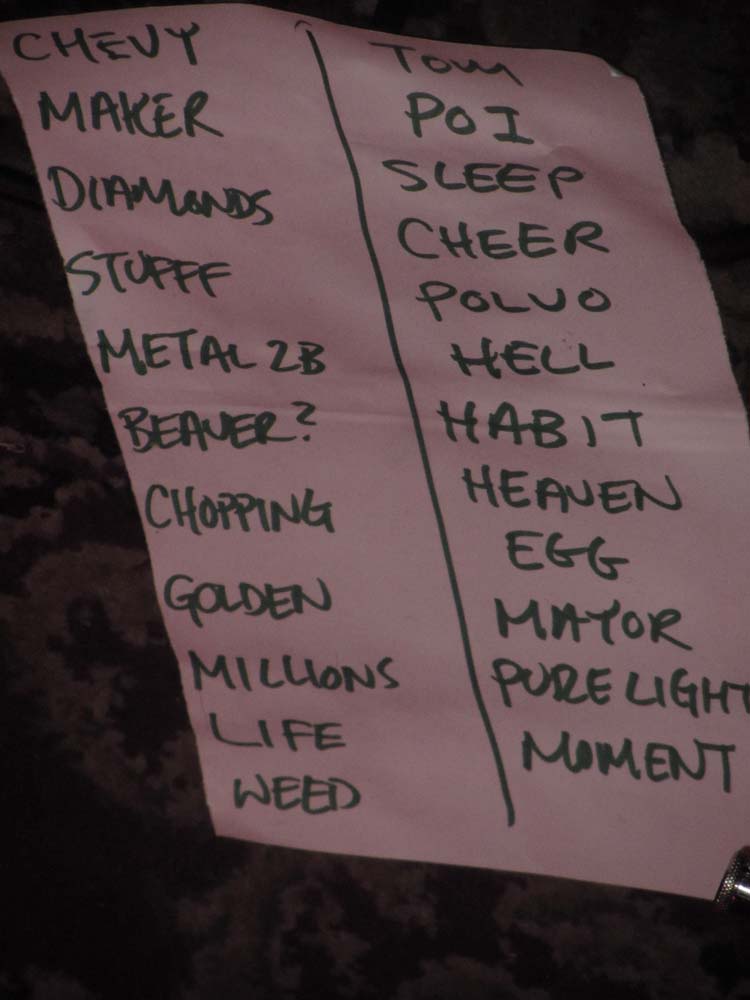 CHEVY
MAKER
DIAMONDS
STUFFF
METAL 2B
BEAVER?
CHOPPING
GOLDEN
MILLIONS
LIFE
WEED
TOM
POI
SLEEP
CHEER
POLVO
HELL
HABIT
HEAVEN
EGG
MAYOR
PURE LIGHT
MOMENT